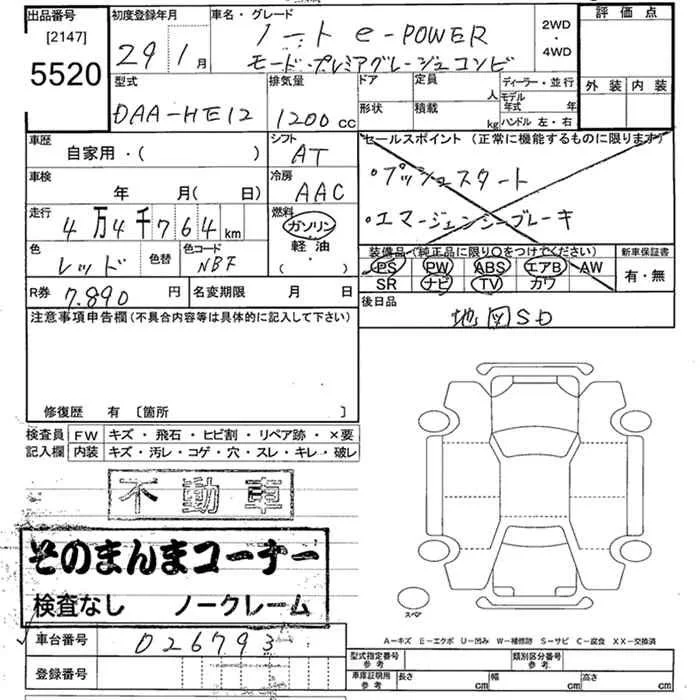 出品番号
[2147]
5520
初度登録年月
29 1月
車名・グレード
ノート e-POWER
モード・プレミア グレージュコンビ
2WD
・
4WD
評価点
外装 内装
型式
DAA-HE12
排気量
1200 cc
ドア
形状
定員
人
積載
kg
ディーラー・並行
モデル年式 年
ハンドル 左・右
車歴
自家用・( )
シフト
AT
セールスポイント (正常に機能するものに限ります)
・プッシュスタート
・エマージェンシーブレーキ
車検
年 月( 日)
冷房
AAC
走行
4万4千764km
燃料
ガソリン
軽油
( ・ )
色
レッド
色替
色コード
NBF
装備品 (純正品に限り○をつけてください)
PS PW ABS エアB AW
SR ナビ TV カワ
新車保証書
有・無
R券
7.890 円
名変期限 月 日
後日品
地図SD
注意事項申告欄 (不具合内容等は具体的に記入して下さい)
修復歴 有 〔箇所 〕
検査員記入欄
FW キズ・飛石・ヒビ割・リペア跡・×要
内装 キズ・汚レ・コゲ・穴・スレ・キレ・破レ
不動車
そのまんまコーナー
検査なし ノークレーム
スペア
A－キズ E－エクボ U－凹み W－補修跡 S－サビ C－腐食 XX－交換済
車台番号
026793
登録番号
型式指定番号
参考
類別区分番号
参考
車庫証明用
参考
長さ cm
幅 cm
高さ cm